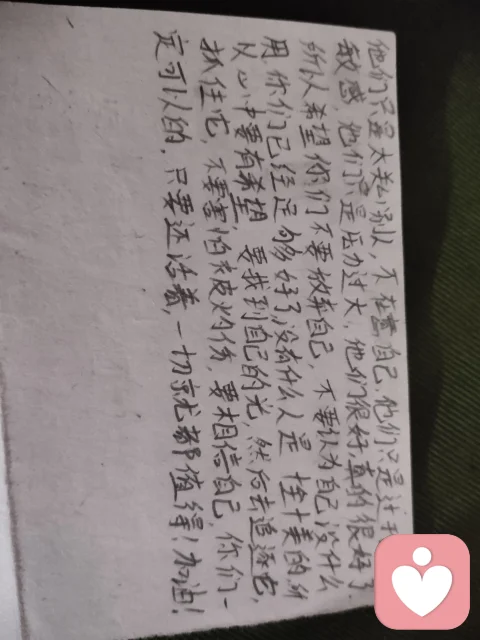 他们只是太关心别人，不在意自己，他们只是过于
敏感，他们只是压力过大，他们很好真的很好了
所以希望你们不要放弃自己，不要认为自己没什么
用你们已经足够好了没有什么人是十美的所
以心中要有希望，要找到自己的光，然后去追逐它，
抓住它，不要害怕被灼伤，要相信自己，你们一
定可以的，只要还活着，一切就都值得！加油！